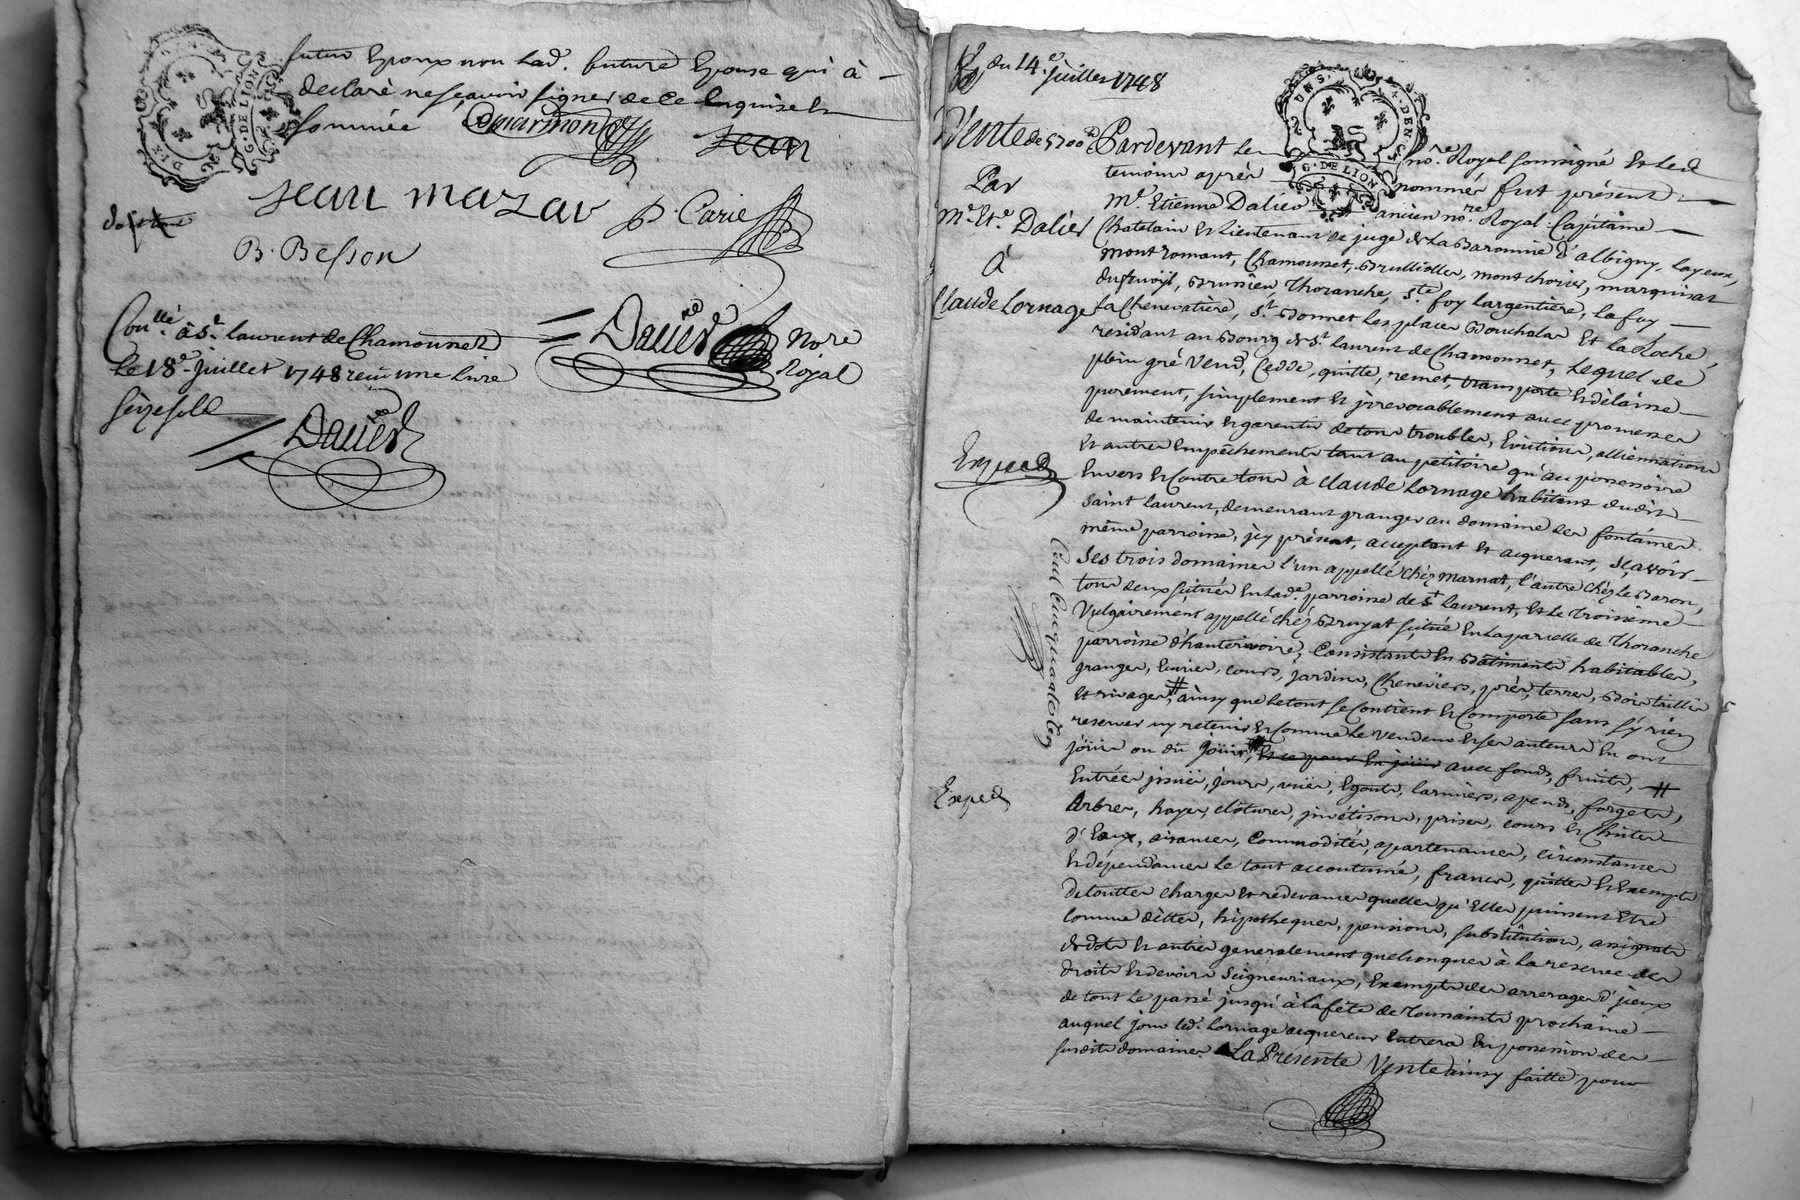 futur Epoux non lad. future Epouse qui à
declaré ne sçavoir signer de ce Enquise et
Sommée
Jean
Jean Mazar
P. Carie
B. Besson
Con.llé à S.t Laurent de Chamousset
Le 18.e Juillet 1748 reçu une livre
Seize sols
Dalier
No.re
Royal
Dalier
DIX
G. DE LION
du 14.e Juillet 1748
Vente de 5700
Par
M.e Et.e Dalier
À
Claude Lornage
Exped
Exped
G. DE LION
Pardevant Le no.re Royal soussigné et Les
temoins après nommés fut présent
M.e Etienne Dalier ancien no.re Royal Capitaine
Chatelain et Lieutenant de juge de La Baronnie d'albigny, Layeux,
montromant, Chamousset, Brullioles, montchorier, marquisat
Brussieu Thoranche, S.te foy Largentiere, Lafay
La Chenevatière, S.t Bonnet Les places Bouchalas Et La Roche,
résidant au Bourg de S.t Laurent de Chamousset, Lequel de
plein gré Vend, Cedde, quitte, remet, transporte et délaisse
purement, simplement et jrrevocablement avec promesses
de maintenir et garentir de tous troubles, Evictions, alliennations
Et autres Empêchements tant au petitoire qu'au possessoire
Envers et Contre tous à Claude Lornage habitant dudit
Saint Laurent, demeurant granger au domaine des fontaines
même parroisse, jcy présent, acceptant et acquerant, Sçavoir
Ses trois domaines l'un appellé chéz marnat, l'autre chéz Le Baron,
tous deux situés En lad.e parroisse de S.t Laurent, et Le Troisième
Vulgairement appellé chéz Bruyat situé En la parcelle de Thoranche
parroisse d'hauterivoire, Consistants En Batiments habitables,
granges, Ecuries, cours, jardins, Cheneviers, prés, terres, Bois taillis
et rivages # ainsy que Le tout se Contient et Comporte sans s'y rien
reserver ny retenir et Comme Le vendeur et ses auteurs En ont
joüir ou dû joüir, avec fonds, fruits, #
Entrées jssuës, jours, vuës, Egouts, larmiers, apends, forgets,
Arbres, hayes, clôtures, jnvétisons, prises, cours et Chuttes
d'Eaux, aisances, Commodités, apartenances, circonstances
et dépendances Le tout accoutumé, francs, quittes et Exempts
de touttes charges et redevances quelles qu'Elles puissent Etre
Comme dettes, hipotheques, pensions, substitution, assignats
de dots et autres generalement quelconques à La reserve des
droits et devoirs Seigneuriaux, Exempts des arrerages d'jceux
de tout Le passé jusqu'à La fête de Toussaints prochaine
auquel jour led. Lornage acquereur Entrera En possession des
susdits domaines La Présente Vente ainsy faitte pour